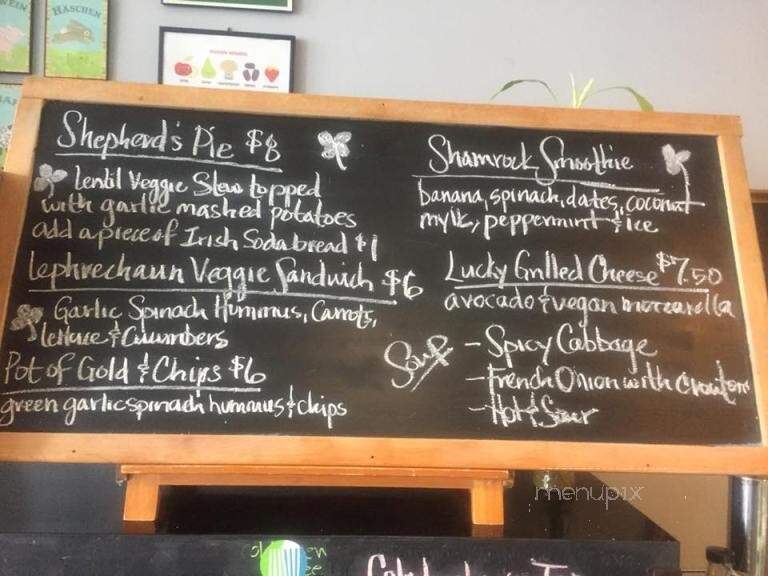 HASCHEN
Shepherd's Pie $8
lentil Veggie Stew topped
with garlic mashed potatoes
add a piece of Irish Soda bread $1
Lephrechaun Veggie Sandwich $6
Garlic Spinach Hummus, Carrots,
lettuce & Cucumbers
Pot of Gold & Chips $6
green garlic spinach hummus & chips
Shamrock Smoothie
banana, spinach, dates, coconut
mylk, peppermint & ice
Lucky Grilled Cheese $7.50
avocado & vegan mozzarella
Soup
- Spicy Cabbage
- French Onion with Croutons
- Hot & Sour
menupix